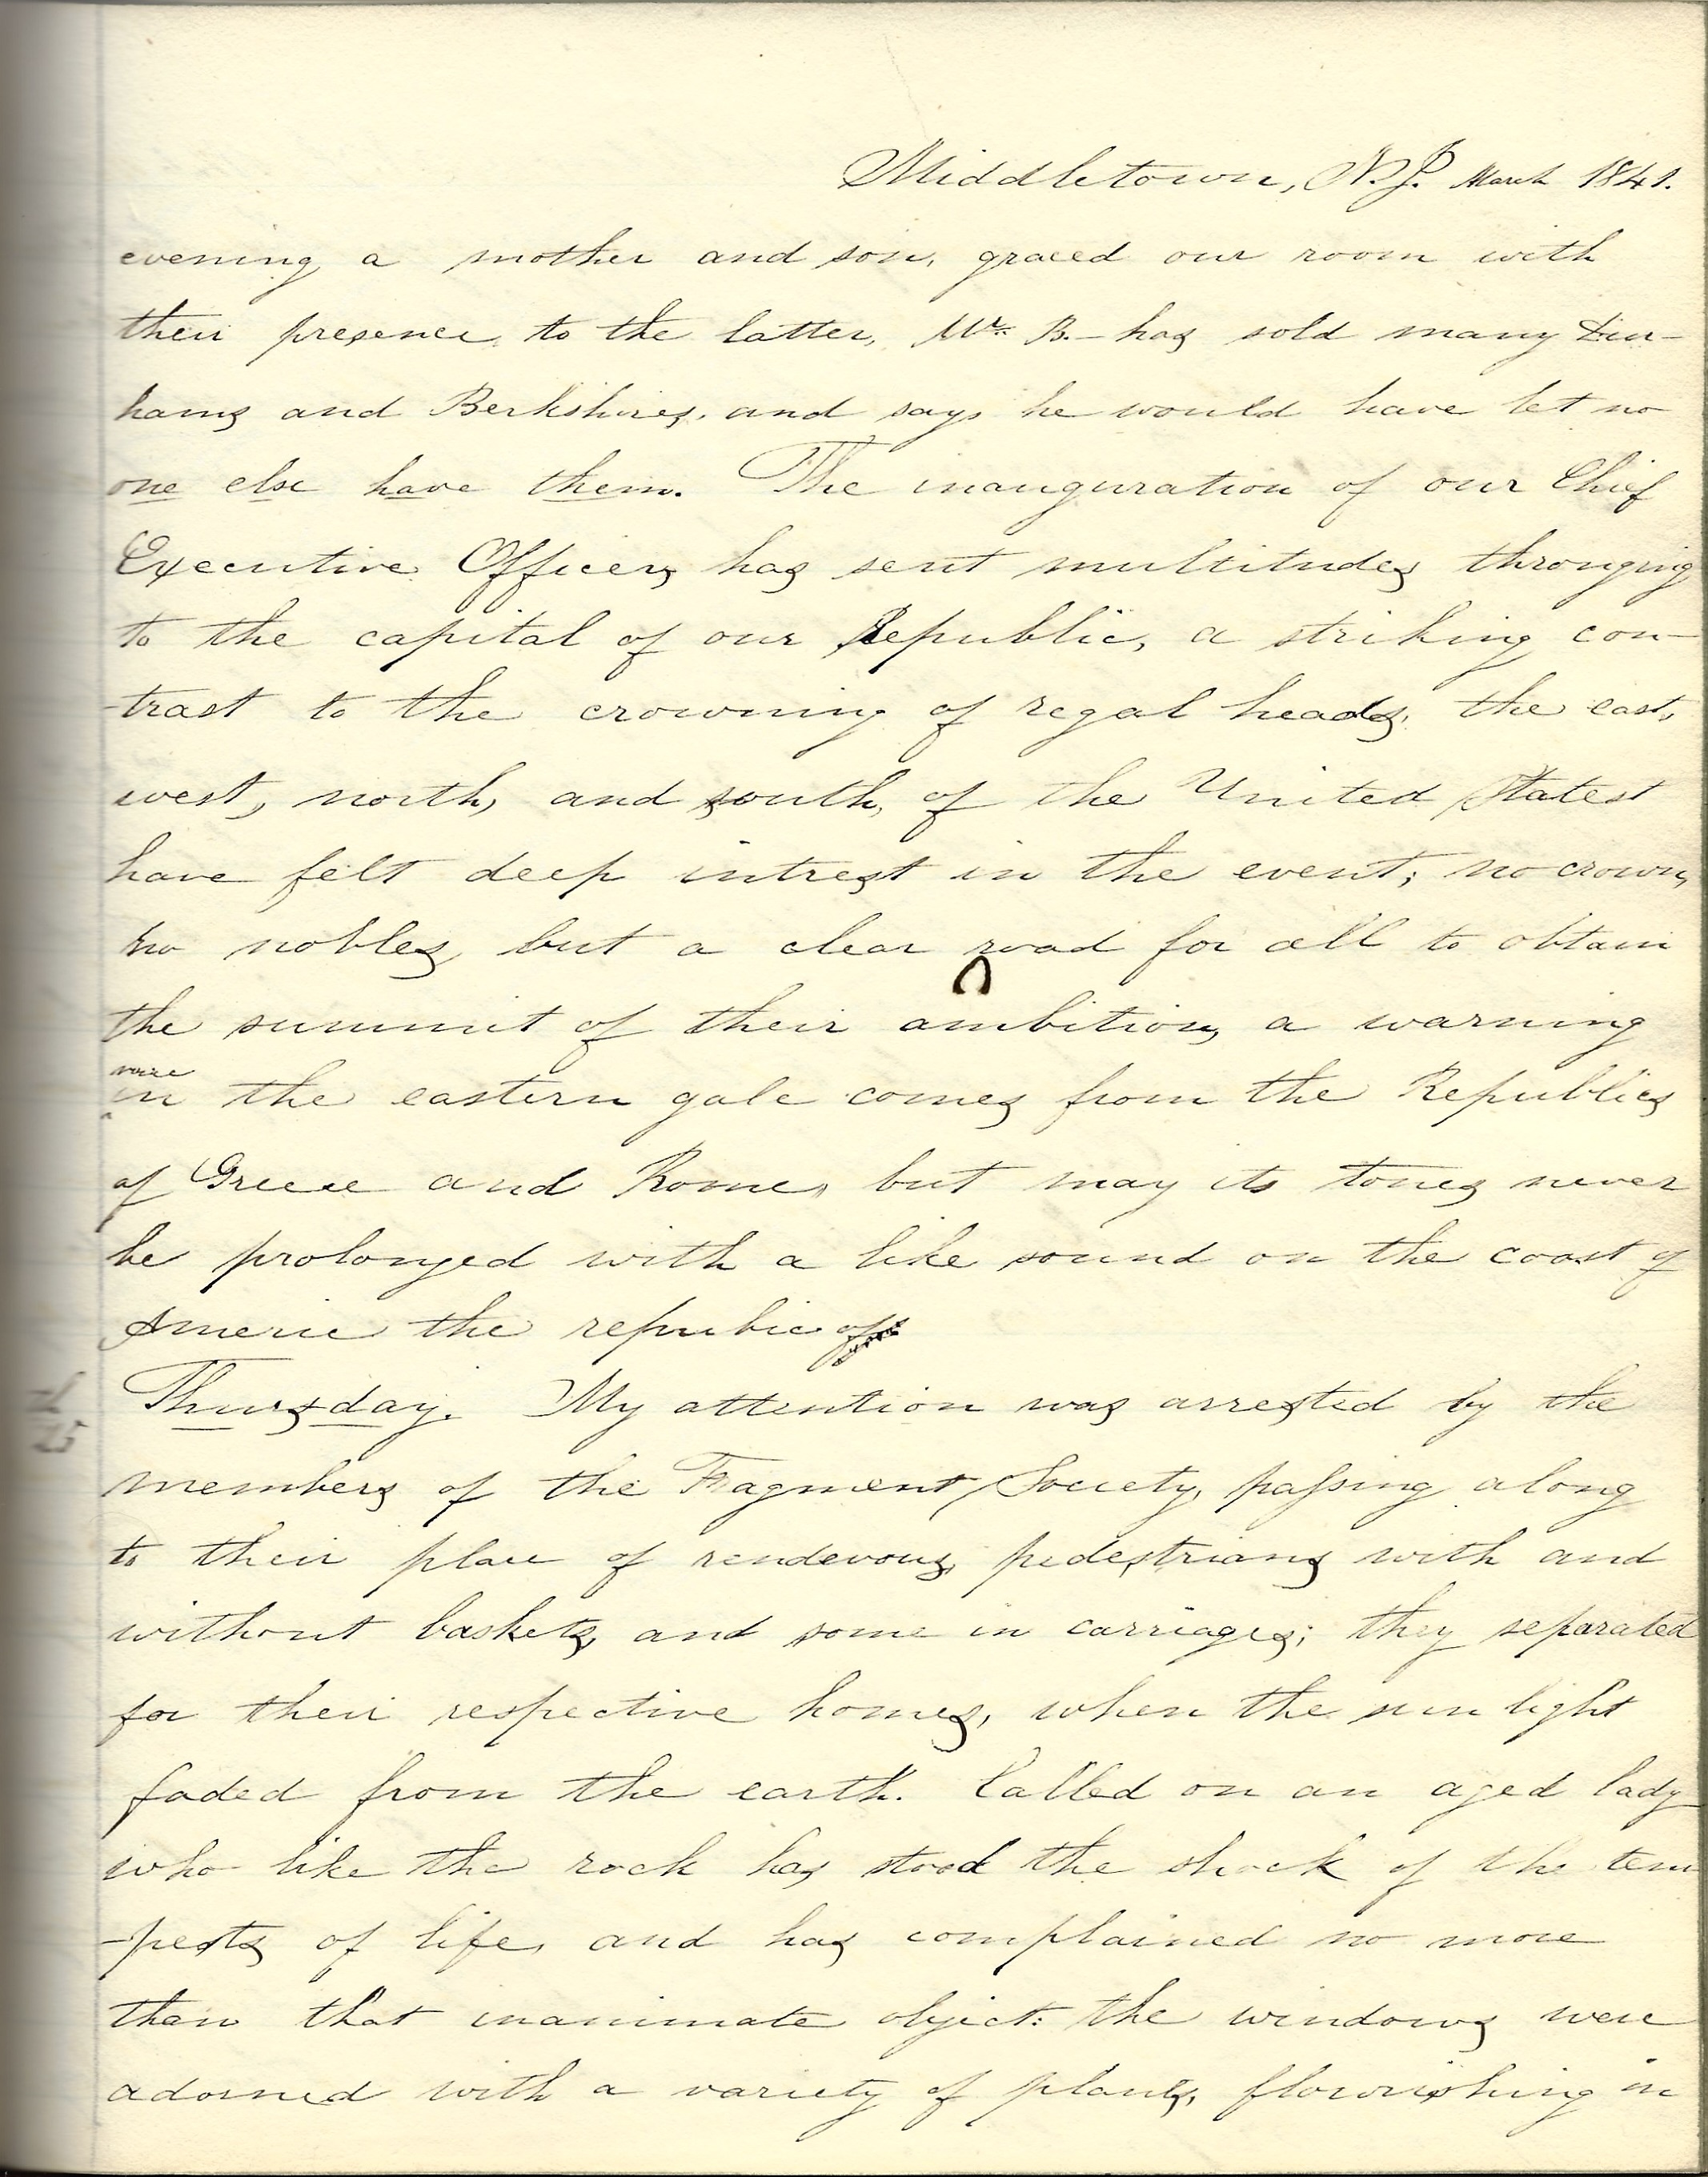 Middletown, N.J. March 1841.
evening a mother and son, graced our room with
their presence, to the latter, Mr. B.- has sold many Dur-
hams and Berkshires, and says he would have let no
one else have them. The inauguration of our Chief
Executive Officer, has sent multitudes thronging
to the capital of our Republic, a striking con-
-trast to the crowning of regal heads, the east,
west, north, and south, of the United States
have felt deep intrest in the event; no crown,
no nobles, but a clear road for all to obtain
the summit of their ambition, a warning
voice
in the eastern gale comes from the Republics
of Greece and Rome, but may its tones never
be prolonged with a like sound on the coast of
Americ the repubic
Thursday. My attention was arrested by the
members of the Fragment Society, passing along
to their place of rendevous, pedestrians with and
without baskets, and some in carriages; they separated
for their respective homes, when the sun light
faded from the earth. Called on an aged lady
who like the rock has stood the shock of the tem
-pests of life, and has complained no more
than that inanimate object: the windows were
adorned with a variety of plants, flourishing in